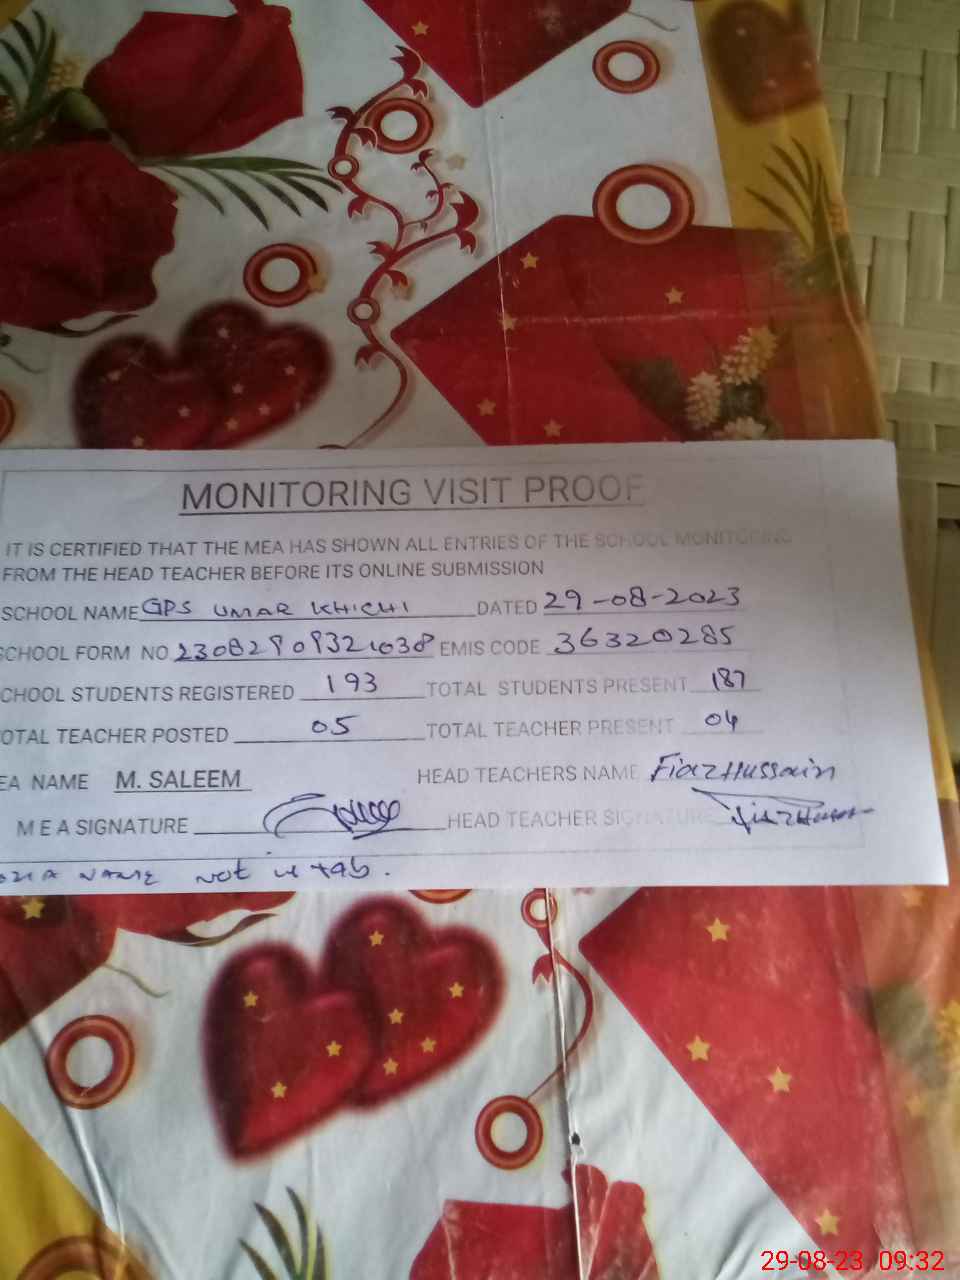 MONITORING VISIT PROOF
IT IS CERTIFIED THAT THE MEA HAS SHOWN ALL ENTRIES OF THE SCHOOL MONITORING
FROM THE HEAD TEACHER BEFORE ITS ONLINE SUBMISSION
SCHOOL NAME GPS UMAR KHICHI DATED 29-08-2023
SCHOOL FORM NO EMIS CODE 36320285
CHOOL STUDENTS REGISTERED 193 TOTAL STUDENTS PRESENT 187
OTAL TEACHER POSTED 05 TOTAL TEACHER PRESENT 04
EA NAME M. SALEEM HEAD TEACHERS NAME Fiaz Hussain
M E A SIGNATURE HEAD TEACHER SIGNATURE
NAME not in tab.
29-08-23, 09:32